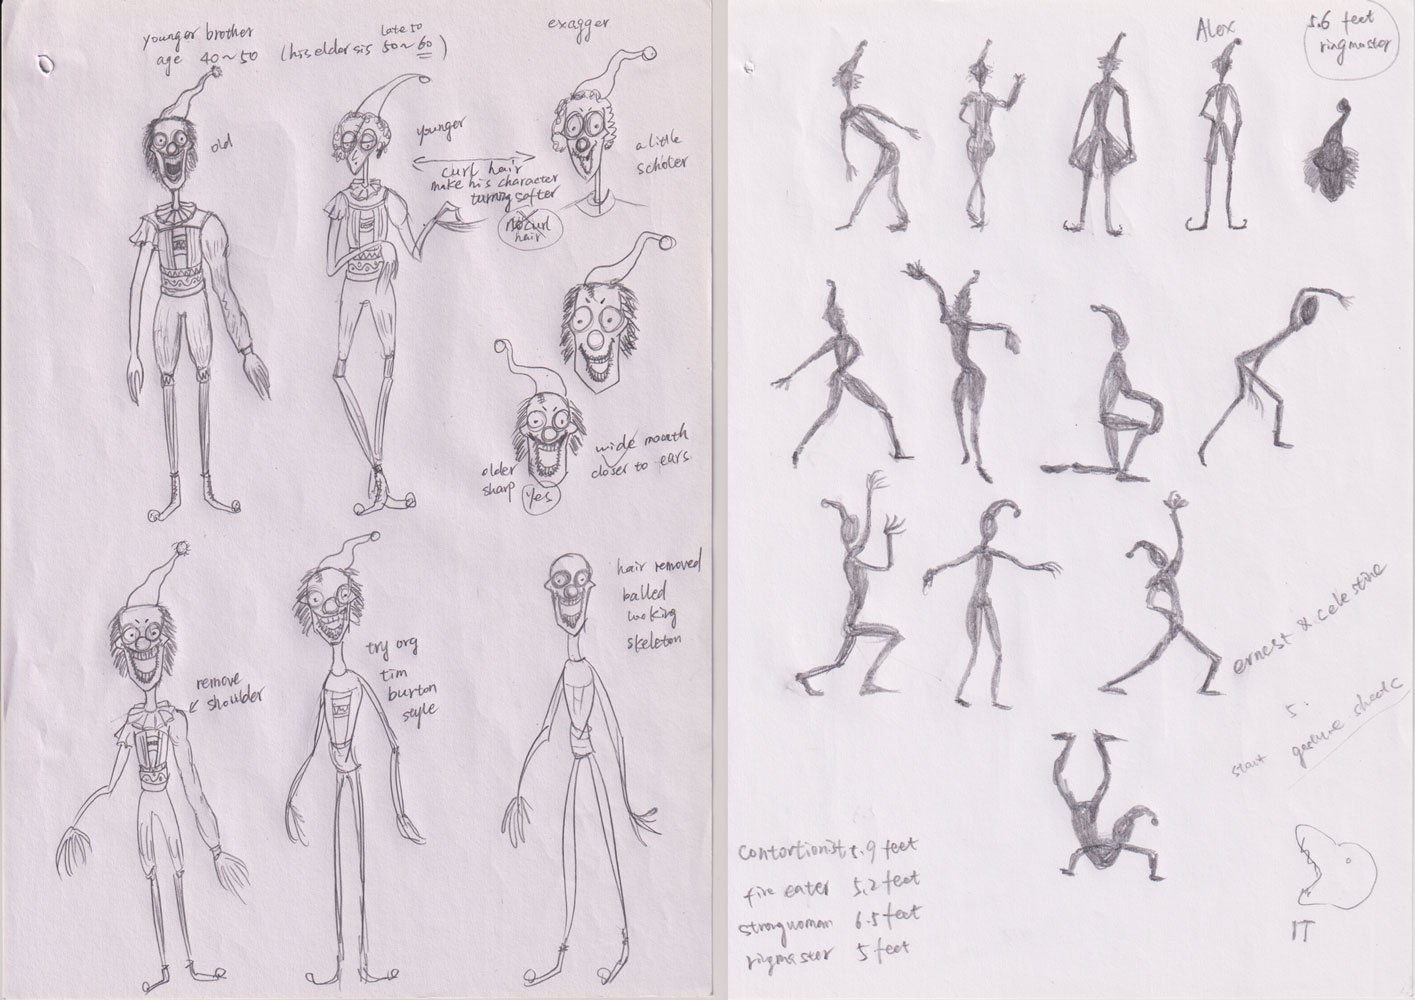 younger brother
age 40~50
(his elder sis 50~60)
late 50
exagger
old
younger
curl hair
make his character
turning safter
a little
scholer
no curl
hair
older
sharp
yes
wide mouth
closer to ears.
remove
shoulder
try org
tim
burton
style
hair removed
balled
looking
skeleton
Alex
5.6 feet
ringmaster
ernest & celestine
5.
start gesture sheets
contortionist 5.9 feet
fire eater 5.2 feet
strongwoman 6.5 feet
ringmaster 5 feet
IT